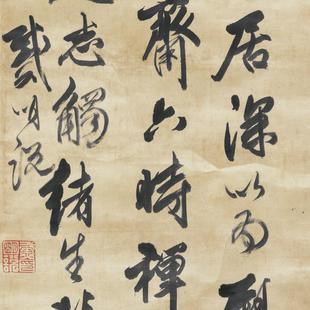 居深以为
齋六時禪
志觸緒生
戴明說